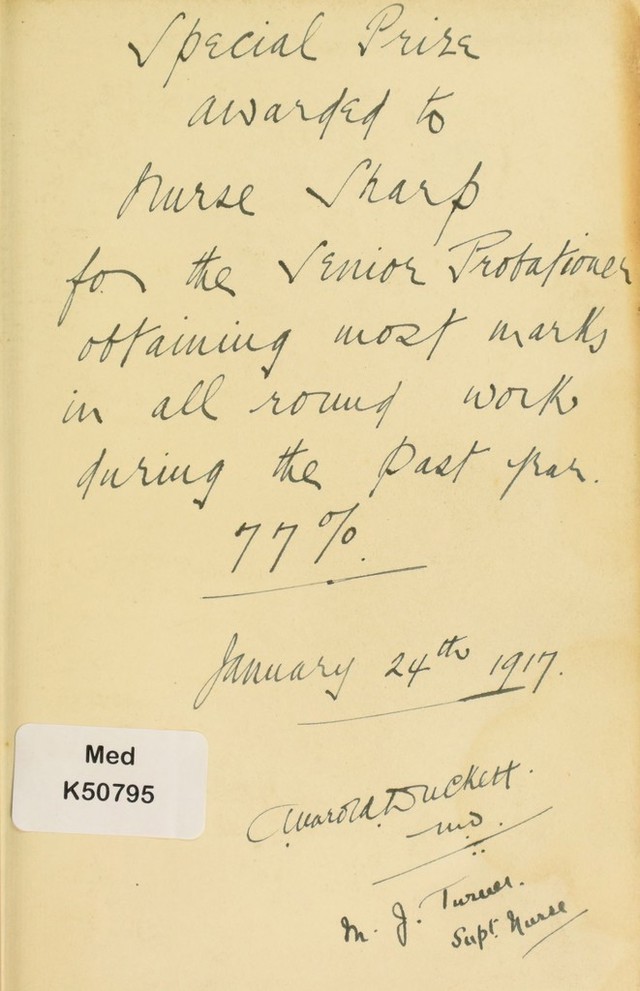 Special Prize
awarded to
Nurse Sharp
for the Senior Probationer
obtaining most marks
in all round work
during the past year.
77%.
January 24th 1917.
Med
K50795
Duckett.
MD.
M. J. Turner.
Supt. Nurse